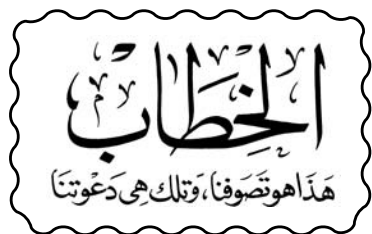 الخِطَاب
هَذَا هو تَصَوفنا، وَتلك هِى دَعْوتنَا